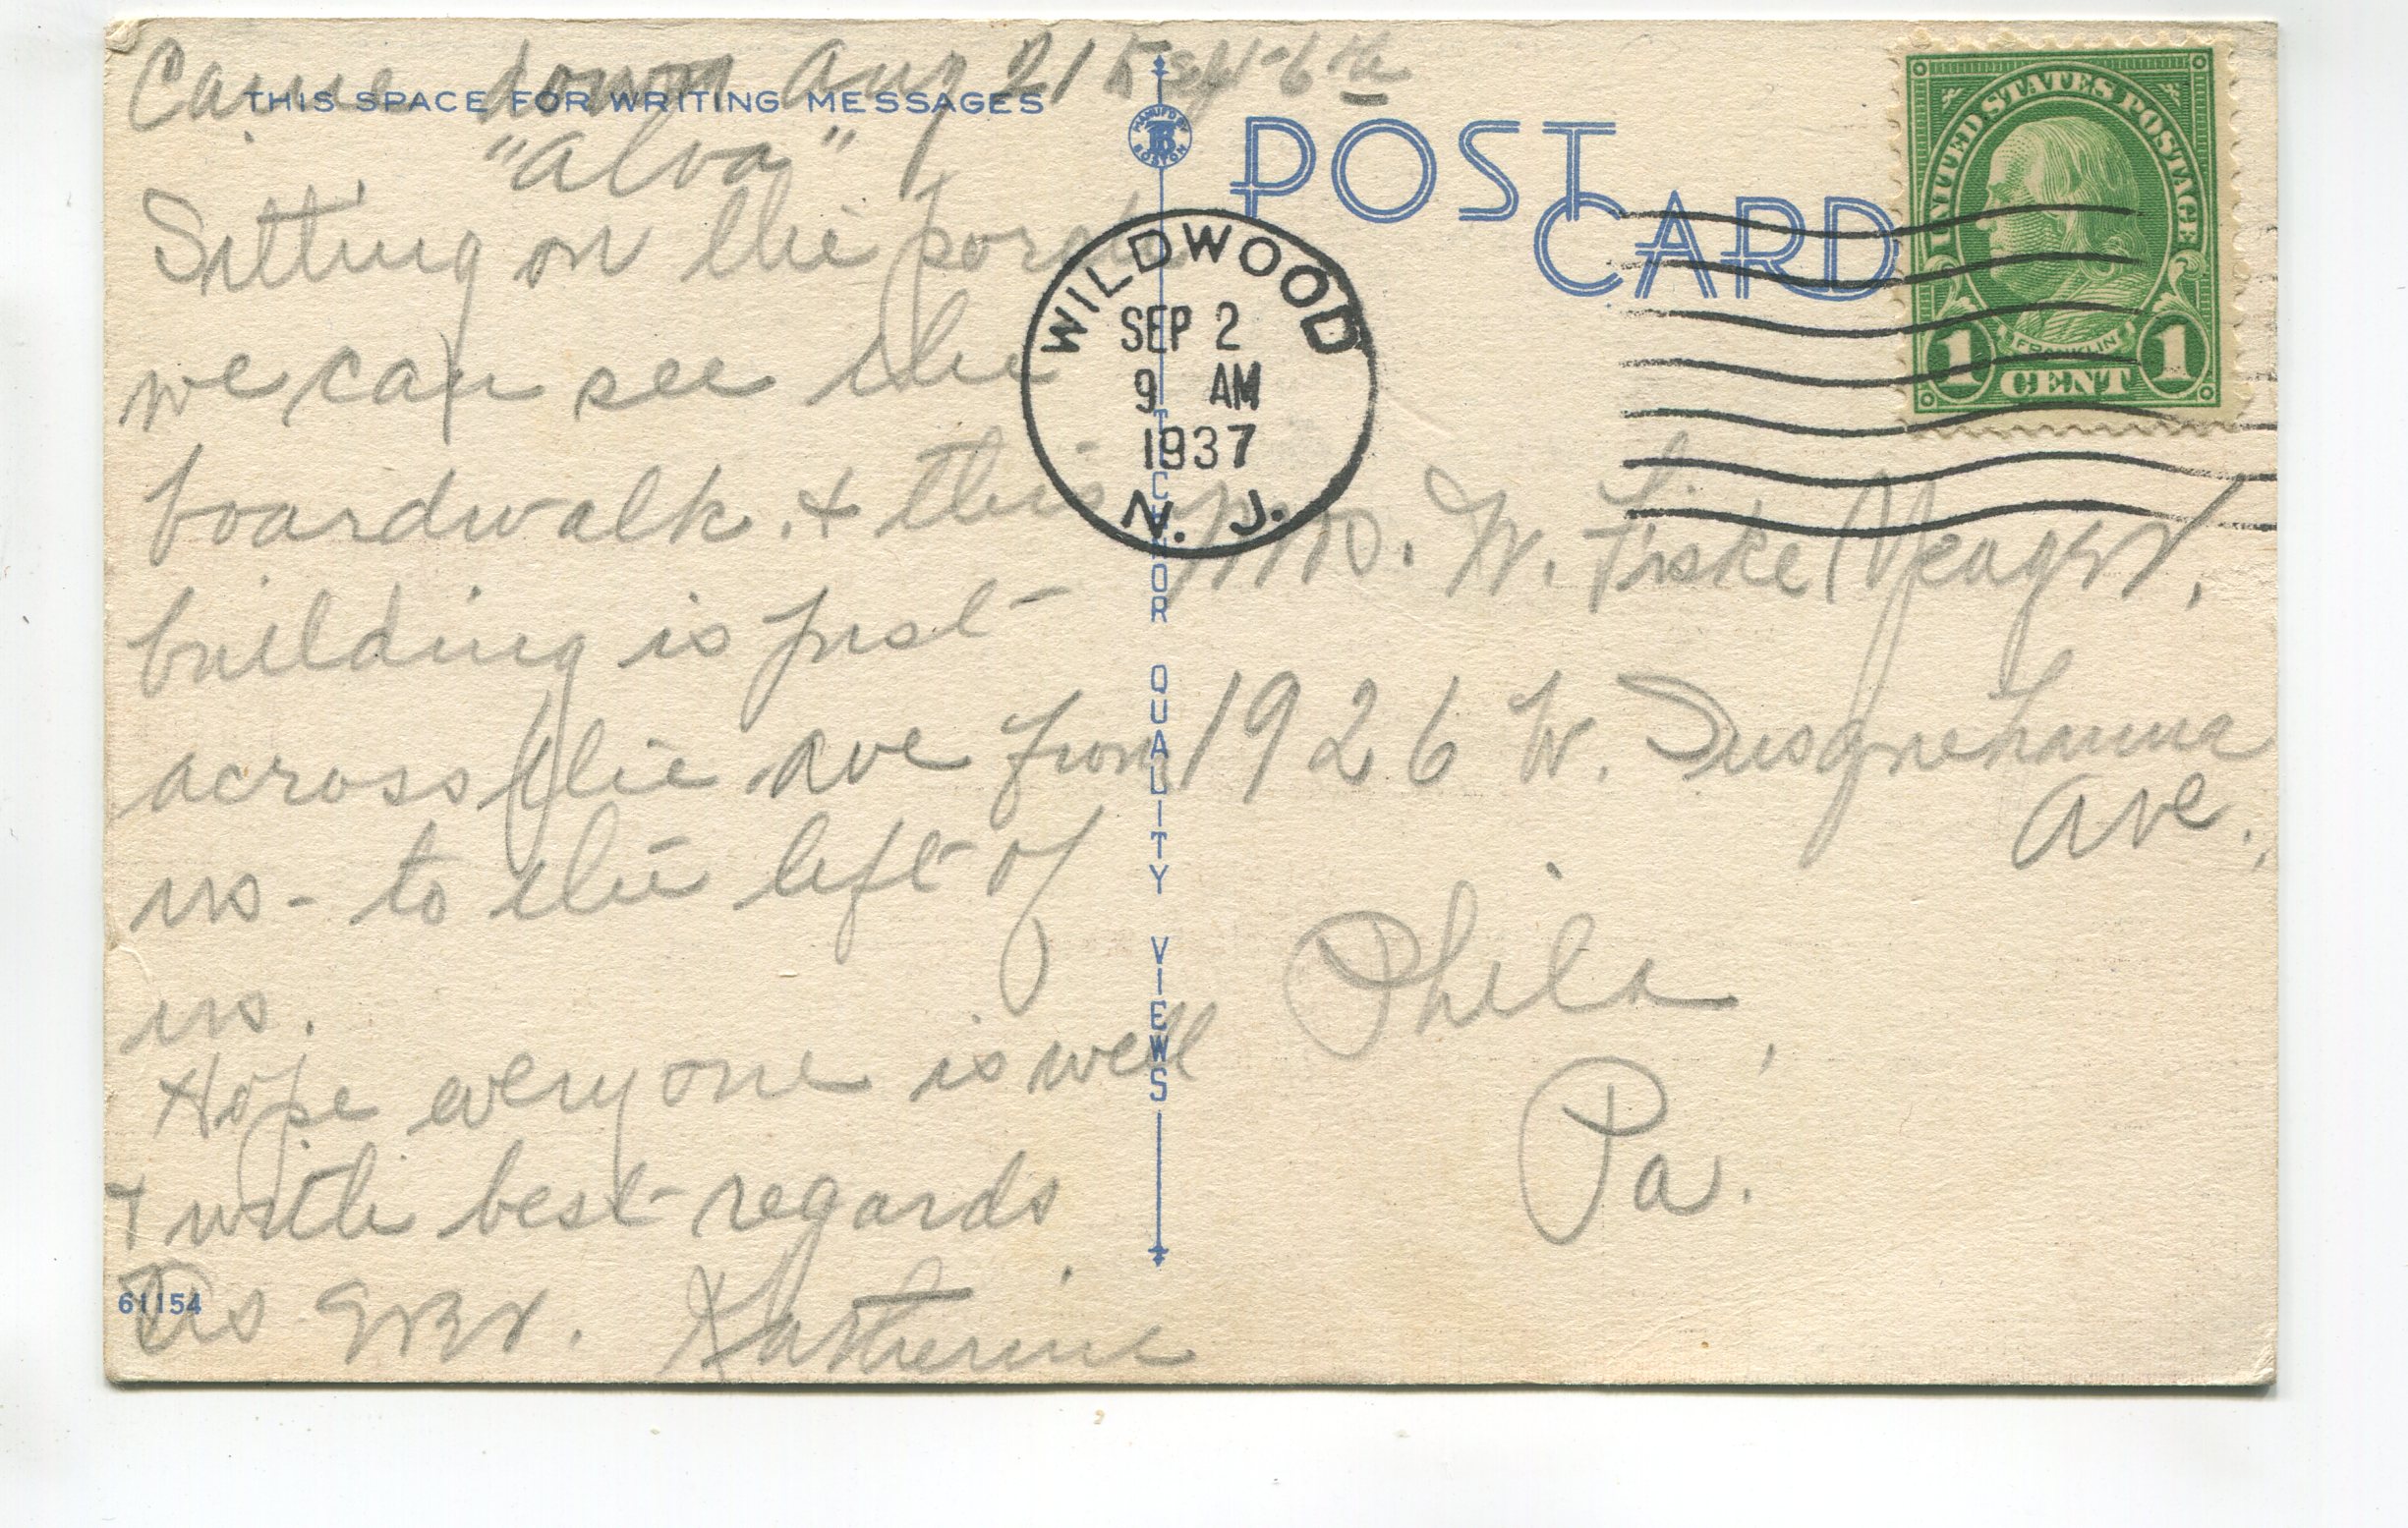 Came down Aug 21 to Sept 6th
THIS SPACE FOR WRITING MESSAGES
"Alva"
Sitting on the porch
we can see the
boardwalk. & this
building is just
across the ave from
us - to the left of
us.
Hope everyone is well
& with best regards
Katherine
61154
MANUF'D BY
BOSTON
TICHNOR QUALITY VIEWS
POST
CARD
WILDWOOD
SEP 2
9 AM
1937
N. J.
UNITED STATES POSTAGE
FRANKLIN
1 CENT 1
Mrs. W. Fiske Meager,
1926 W. Susquehanna
Ave.,
Phila,
Pa.